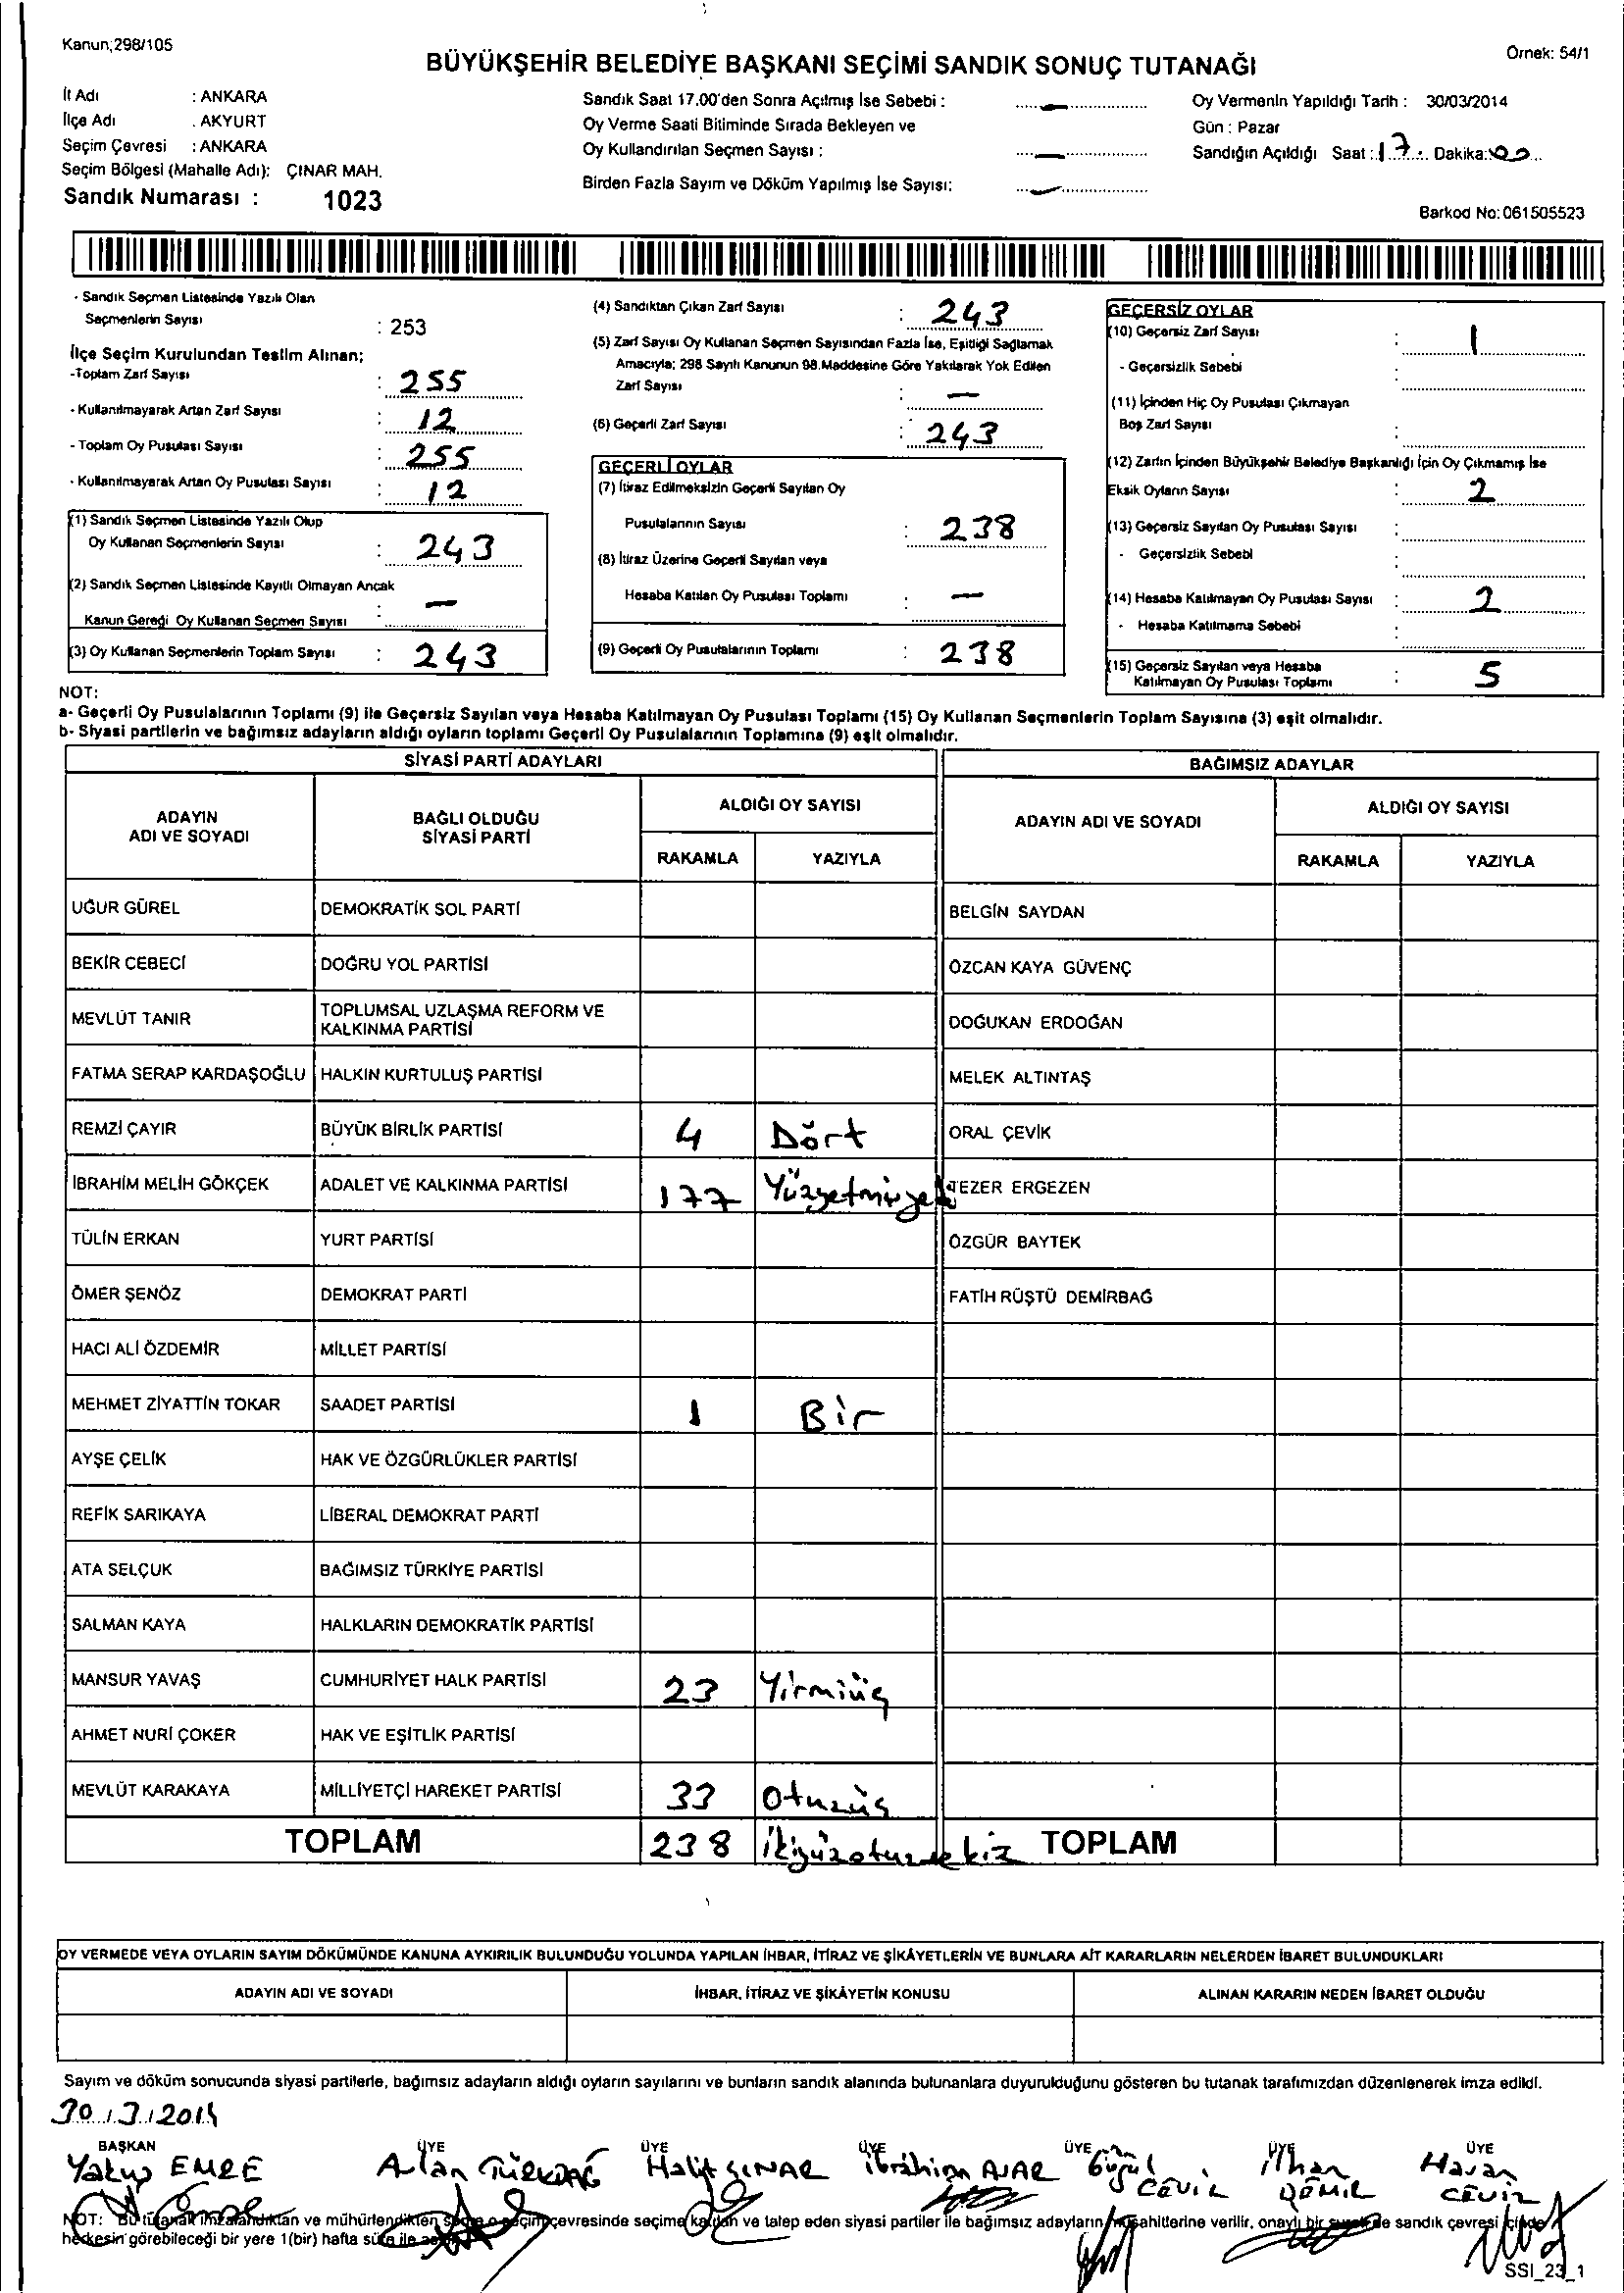 Kanun;298/105
Örnek: 54/1
BÜYÜKŞEHİR BELEDİYE BAŞKANI SEÇİMİ SANDIK SONUÇ TUTANAĞI
İl Adı : ANKARA
İlçe Adı . AKYURT
Seçim Çevresi : ANKARA
Seçim Bölgesi (Mahalle Adı): ÇINAR MAH.
Sandık Numarası : 1023
Sandık Saat 17.00'den Sonra Açılmış İse Sebebi : —
Oy Verme Saati Bitiminde Sırada Bekleyen ve
Oy Kullandırılan Seçmen Sayısı : —
Birden Fazla Sayım ve Döküm Yapılmış İse Sayısı: —
Oy Vermenin Yapıldığı Tarih : 30/03/2014
Gün : Pazar
Sandığın Açıldığı Saat : 17 Dakika: 00
Barkod No: 061505523
- Sandık Seçmen Listesinde Yazılı Olan
Seçmenlerin Sayısı : 253
İlçe Seçim Kurulundan Teslim Alınan;
-Toplam Zarf Sayısı : 255
- Kullanılmayarak Artan Zarf Sayısı : 12
- Toplam Oy Pusulası Sayısı : 255
- Kullanılmayarak Artan Oy Pusulası Sayısı : 12
(1) Sandık Seçmen Listesinde Yazılı Olup
Oy Kullanan Seçmenlerin Sayısı : 243
(2) Sandık Seçmen Listesinde Kayıtlı Olmayan Ancak
Kanun Gereği Oy Kullanan Seçmen Sayısı : —
(3) Oy Kullanan Seçmenlerin Toplam Sayısı : 243
(4) Sandıktan Çıkan Zarf Sayısı : 243
(5) Zarf Sayısı Oy Kullanan Seçmen Sayısından Fazla İse, Eşitliği Sağlamak
Amacıyla; 298 Sayılı Kanunun 98.Maddesine Göre Yakılarak Yok Edilen
Zarf Sayısı : —
(6) Geçerli Zarf Sayısı : 243
GEÇERLİ OYLAR
(7) İtiraz Edilmeksizin Geçerli Sayılan Oy
Pusulalarının Sayısı : 238
(8) İtiraz Üzerine Geçerli Sayılan veya
Hesaba Katılan Oy Pusulası Toplamı : —
(9) Geçerli Oy Pusulalarının Toplamı : 238
GEÇERSİZ OYLAR
(10) Geçersiz Zarf Sayısı : 1
- Geçersizlik Sebebi
(11) İçinden Hiç Oy Pusulası Çıkmayan
Boş Zarf Sayısı :
(12) Zarfın İçinden Büyükşehir Belediye Başkanlığı İçin Oy Çıkmamış İse
Eksik Oyların Sayısı : 2
(13) Geçersiz Sayılan Oy Pusulası Sayısı :
- Geçersizlik Sebebi :
(14) Hesaba Katılmayan Oy Pusulası Sayısı : 2
- Hesaba Katılmama Sebebi :
(15) Geçersiz Sayılan veya Hesaba
Katılmayan Oy Pusulası Toplamı : 5
NOT:
a- Geçerli Oy Pusulalarının Toplamı (9) ile Geçersiz Sayılan veya Hesaba Katılmayan Oy Pusulası Toplamı (15) Oy Kullanan Seçmenlerin Toplam Sayısına (3) eşit olmalıdır.
b- Siyasi partilerin ve bağımsız adayların aldığı oyların toplamı Geçerli Oy Pusulalarının Toplamına (9) eşit olmalıdır.
SİYASİ PARTİ ADAYLARI
ADAYIN ADI VE SOYADI
BAĞLI OLDUĞU SİYASİ PARTİ
ALDIĞI OY SAYISI
RAKAMLA YAZIYLA
UĞUR GÜREL DEMOKRATİK SOL PARTİ
BEKİR CEBECİ DOĞRU YOL PARTİSİ
MEVLÜT TANIR TOPLUMSAL UZLAŞMA REFORM VE KALKINMA PARTİSİ
FATMA SERAP KARDAŞOĞLU HALKIN KURTULUŞ PARTİSİ
REMZİ ÇAYIR BÜYÜK BİRLİK PARTİSİ 4 Dört
İBRAHİM MELİH GÖKÇEK ADALET VE KALKINMA PARTİSİ 177 Yüzyetmişyedi
TÜLİN ERKAN YURT PARTİSİ
ÖMER ŞENÖZ DEMOKRAT PARTİ
HACI ALİ ÖZDEMİR MİLLET PARTİSİ
MEHMET ZİYATTİN TOKAR SAADET PARTİSİ 1 Bir
AYŞE ÇELİK HAK VE ÖZGÜRLÜKLER PARTİSİ
REFİK SARIKAYA LİBERAL DEMOKRAT PARTİ
ATA SELÇUK BAĞIMSIZ TÜRKİYE PARTİSİ
SALMAN KAYA HALKLARIN DEMOKRATİK PARTİSİ
MANSUR YAVAŞ CUMHURİYET HALK PARTİSİ 23 Yirmiüç
AHMET NURİ ÇOKER HAK VE EŞİTLİK PARTİSİ
MEVLÜT KARAKAYA MİLLİYETÇİ HAREKET PARTİSİ 33 Otuzüç
TOPLAM 238 İkiyüzotuzsekiz
BAĞIMSIZ ADAYLAR
ADAYIN ADI VE SOYADI
ALDIĞI OY SAYISI
RAKAMLA YAZIYLA
BELGİN SAYDAN
ÖZCAN KAYA GÜVENÇ
DOĞUKAN ERDOĞAN
MELEK ALTINTAŞ
ORAL ÇEVİK
TEZER ERGEZEN
ÖZGÜR BAYTEK
FATİH RÜŞTÜ DEMİRBAĞ
TOPLAM
OY VERMEDE VEYA OYLARIN SAYIM DÖKÜMÜNDE KANUNA AYKIRILIK BULUNDUĞU YOLUNDA YAPILAN İHBAR, İTİRAZ VE ŞİKÂYETLERİN VE BUNLARA AİT KARARLARIN NELERDEN İBARET BULUNDUKLARI
ADAYIN ADI VE SOYADI
İHBAR, İTİRAZ VE ŞİKÂYETİN KONUSU
ALINAN KARARIN NEDEN İBARET OLDUĞU
Sayım ve döküm sonucunda siyasi partilerle, bağımsız adayların aldığı oyların sayılarını ve bunların sandık alanında bulunanlara duyurulduğunu gösteren bu tutanak tarafımızdan düzenlenerek imza edildi.
30/3/2014
BAŞKAN ÜYE ÜYE ÜYE ÜYE ÜYE ÜYE
Yakup EMRE
TÜRKDAĞ
Halit ÇINAR
İbrahim
CEVİZ
İlhan DEMİR
Hasan CEVİZ
NOT: Bu tutanak imzalandıktan ve mühürlendikten sonra o seçim çevresinde seçime katılan ve talep eden siyasi partiler ile bağımsız adayların müşahitlerine verilir, onaylı bir sureti de sandık çevresi içinde
herkesin görebileceği bir yere 1(bir) hafta süre ile
SSI_23_1